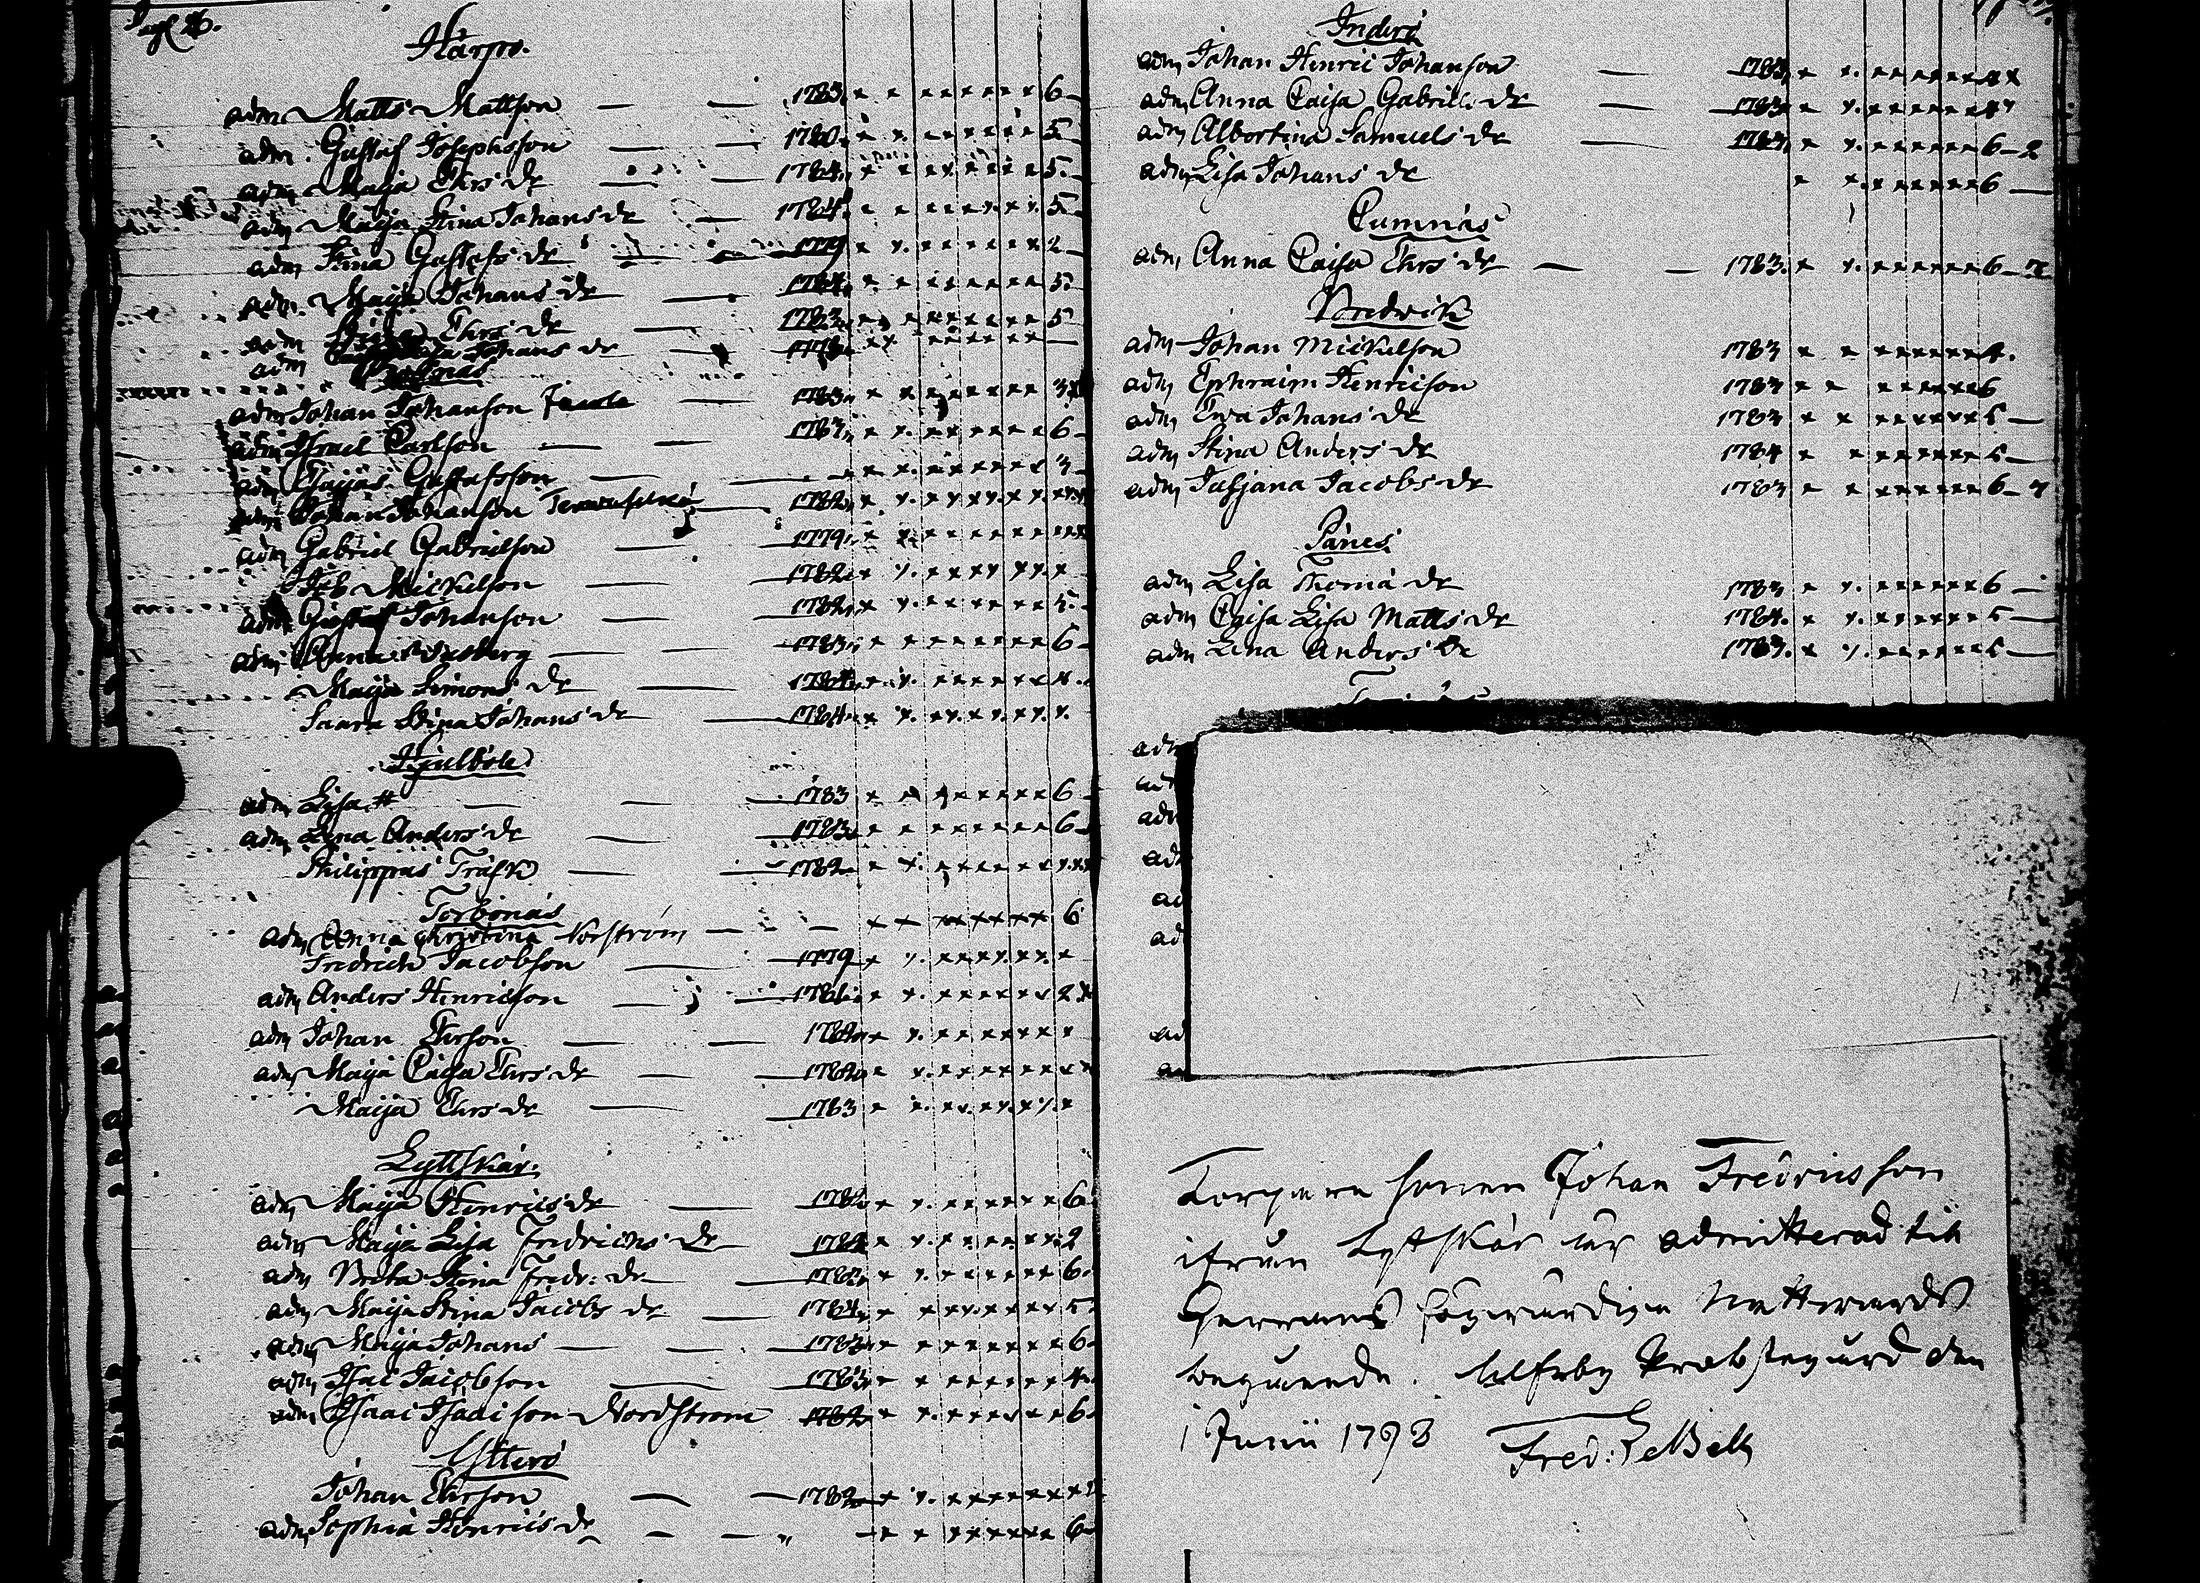 Pag 26.
Härpö.
adm Matts Mattson — — 1783. x x x x x x x x 6 -
adm Gustaf Josephsson — — 1780. x x x x x x x x 5 -
adm Maija Ehrs de — — 1784. x x x x x x x x 5. -
adm Maija Stina Johans de — 1784. x x x x x x x x 5 -
adm Stina Gustafs de — — 1779 x x x x x x x x 2 -
adm Maija Johans de — 1784. x x x x x x x x 5.
adm Ehrs de — 1783 x x x x x x x x 5
adm Johans de — 1778
adm Johan Johanson — 1783. x x x x x x x x 3
adm Israel Carlson — — 1783. x x x x x x x x 6 -
adm Gustafsson — x x x x x x x x 3 -
adm Johan Johanson — 1782. x x x x x x x x
adm Gabriel Gabrielson — 1779. x x x x x x x x
Mickelson — 1782. x x x x x x x x
adm Gustaf Johanson — 1782. x x x x x x x x 5. -
adm Anna — 1783. x x x x x x x x 6 -
Maija Simons de — 1784. x x x x x x x x
Saara Stina Johans de — 1784. x x x x x x x x
Kiulböle
adm Lisa # — — 1783 x x x x x x x x 6 -
adm Lena Anders de — 1783. x x x x x x x x 6 -
Philippus Träsk — 1782 x x x x x x x x
Torbonäs
adm Anna Christina Norström — — x x x x x x x x 6
Fredrich Jacobson — 1779 x x x x x x x x
adm Anders Henricson — 178 x x x x x x x x 2
adm Johan Ehrson — — 1782. x x x x x x x x
adm Maija Caisa Ehrs de — 1782. x x x x x x x x
Maija Ehrs de — 1783 x x x x x x x x
Lyttskär.
adm Maija Henrics de — 178 x x x x x x x x 6
adm Maija Lisa Fredrichs de — 178 x x x x x x x x 2
adm Brita Stina Fredr: de — 178 x x x x x x x x 6.
adm Maija Stina Jacobs de — 1784. x x x x x x x x 5
adm Maija Johans — — 1783. x x x x x x x x 6
adm Isac Jacobson — 1783. x x x x x x x x 4
adm Isaac Isacison Nordstrom 1782 x x x x x x x x 6
Ytterö
Johan Ehrson — — 1782 x x x x x x x x
adm Sophia Henrics de — — „ — x x x x x x x x 6
Inderö
adm Johan Henric Johanson — 1783. x x x x x x x x
adm Anna Caisa Gabriels de — 1783. x x x x x x x x
adm Albertina Samuels de — 1783. x x x x x x x x 6 - 2
adm Lisa Johans de x x x x x x x x 6 —
Cumnäs
adm Anna Caisa Ehrs de — — 1783. x x x x x x x x 6 -
Bredwik
adm Johan Mickelson 1783 x x x x x x x x 4.
adm Ephraim Henricson 1783 x x x x x x x x 6
adm Ewa Johans de 1783 x x x x x x x x 5 —
adm Stina Anders de 1784 x x x x x x x x 5 —
adm Tasjana Jacobs de 1783 x x x x x x x x 6 -
Pänes
adm Lisa Thoma de 1783 x x x x x x x x 6 —
adm Caisa Lisa Matts de 1784. x x x x x x x x 5 —
adm Lena Anders de 1783. x x x x x x x x 5 —
adm
ad
adm
ad
ad
ad
ad
a
Torpare sonen Johan Fredricsson
ifrån Lyttskär är admitterad till
Herrans högwürdiga Nattwards
begående. Ulfsby Probstegård den
1 Junii 1798 Fred: Lebell